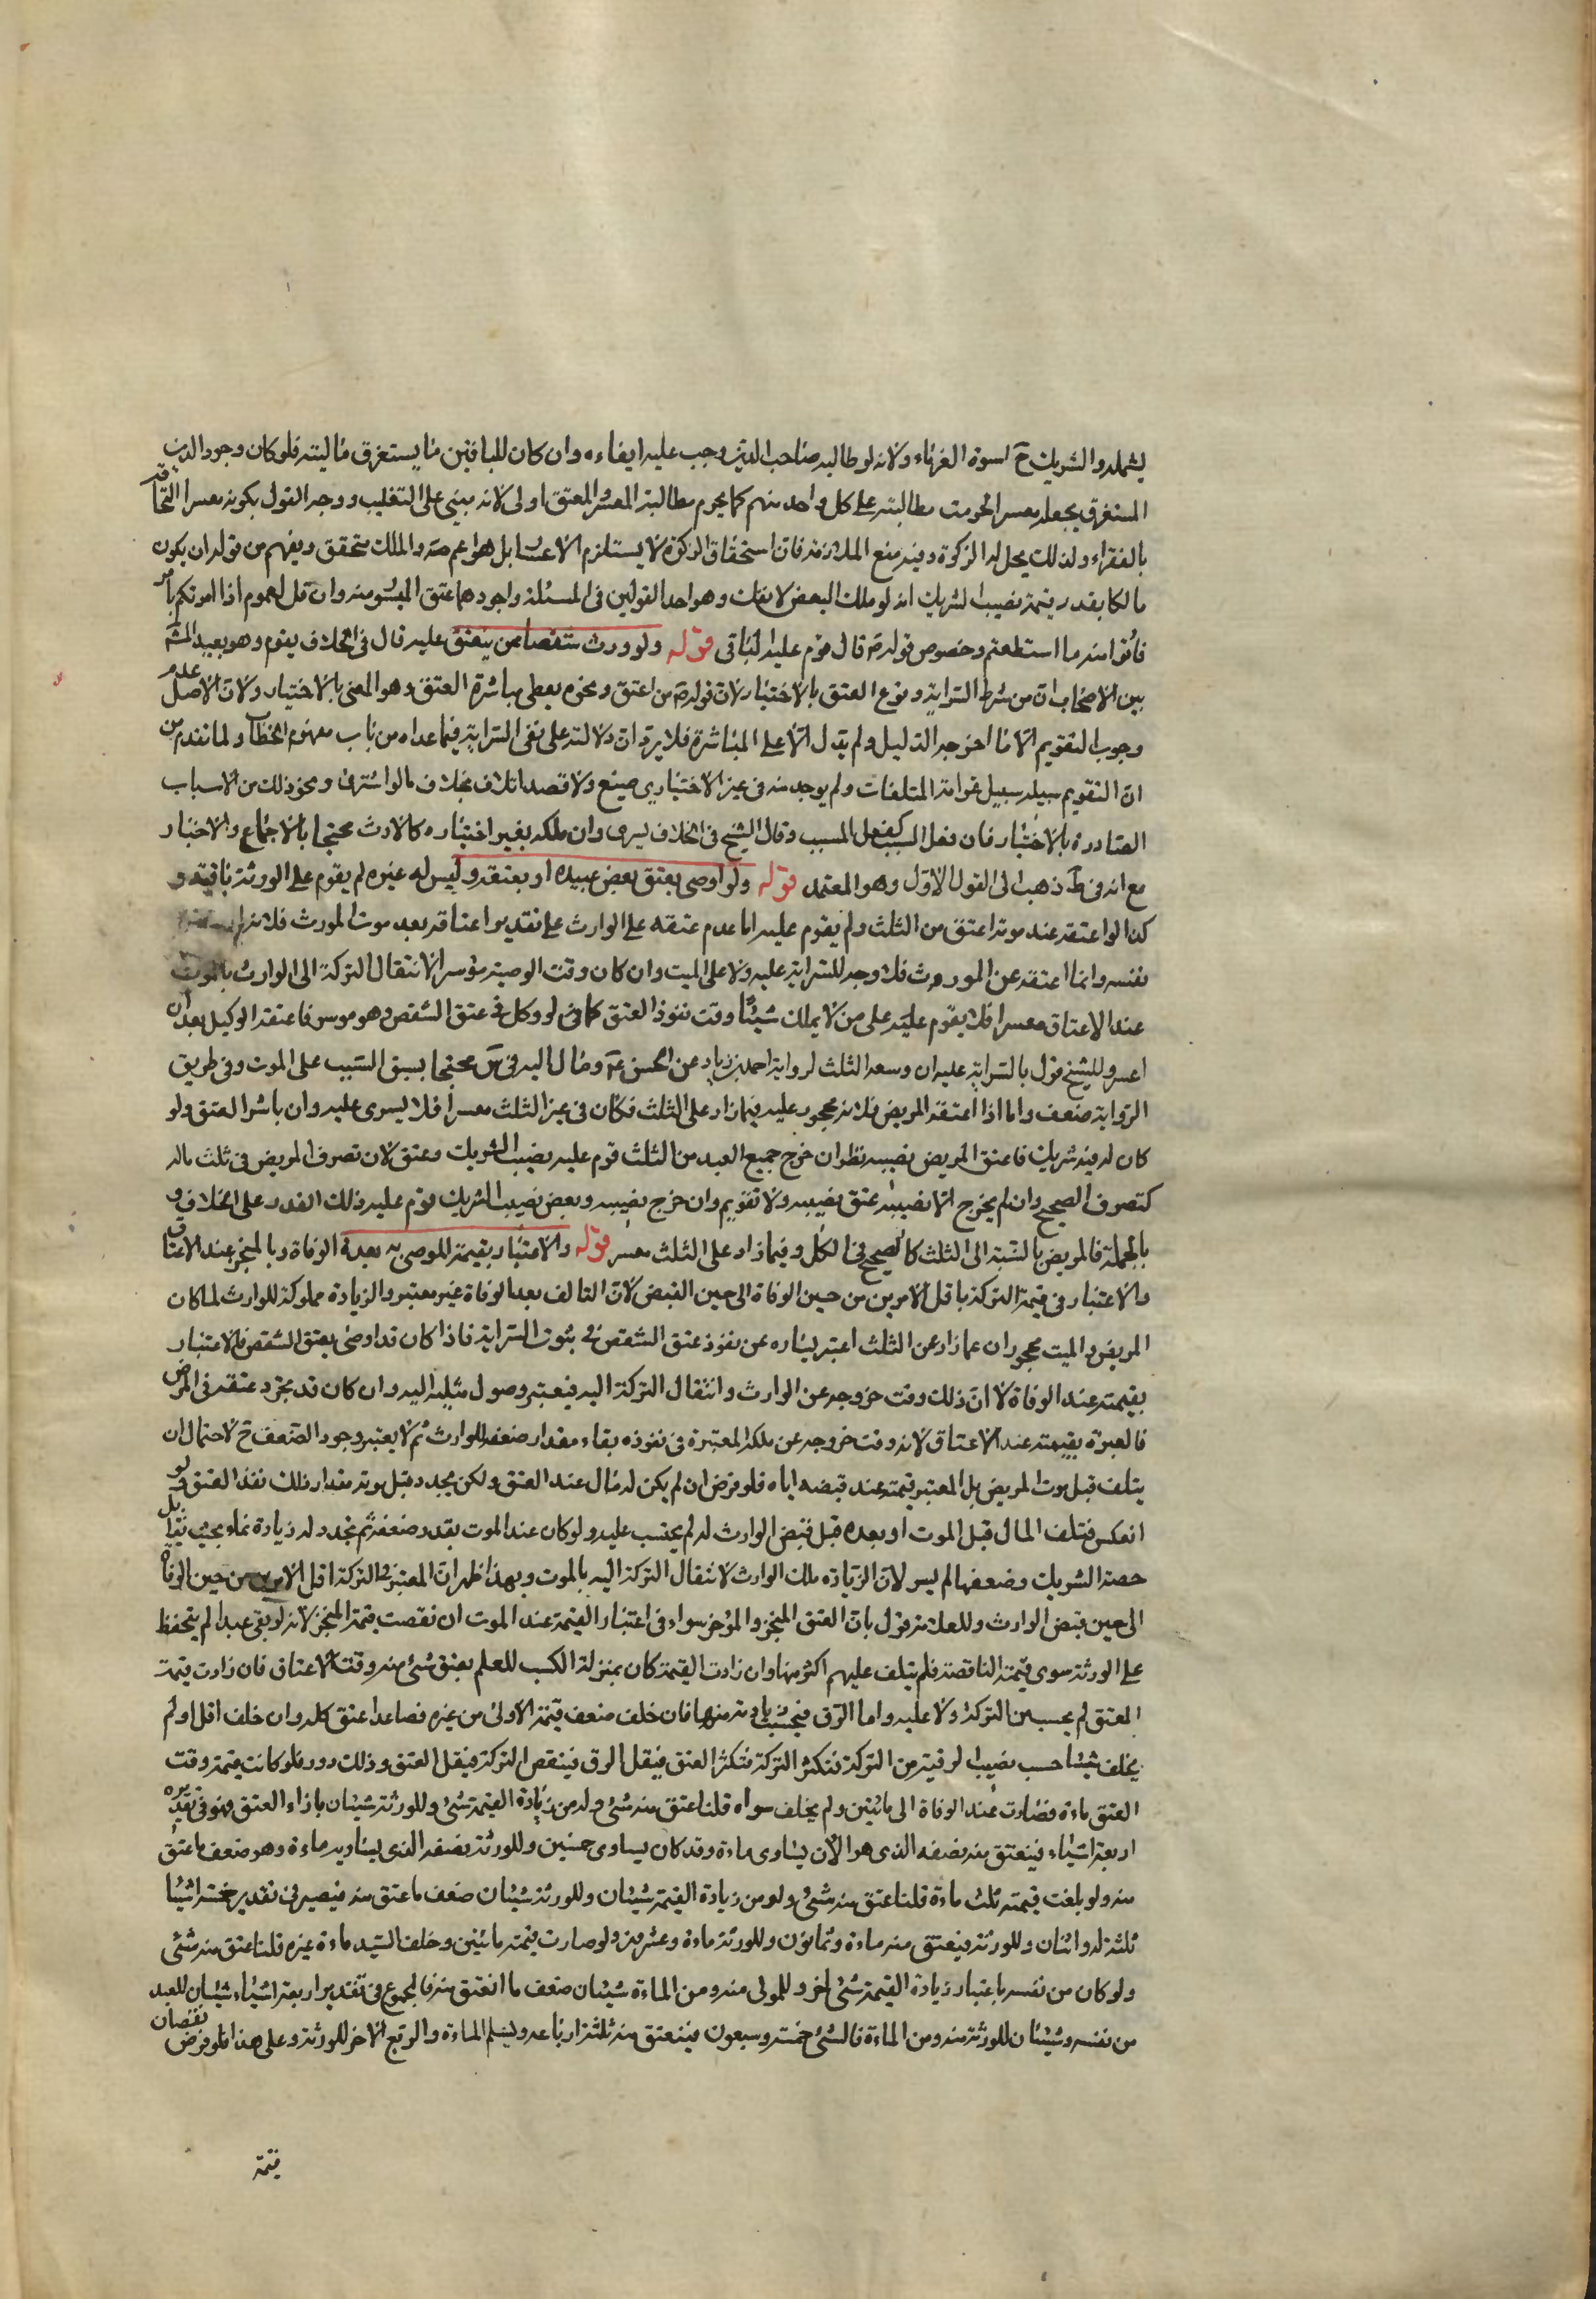 يشمله والشريك ح اسوة الغرماء ولانه لو طالبه صاحب الدين وجب عليه ايفاءه وان كان للباقين ما يستغرق ماليته فلو كان وجود الدين
المستغرق يجعله معسرا لحرمت مطالبته على كل واحد منهم كما يحرم مطالبة المعسر والمعتق اولى لانه مبنى على التغليب ووجه القول بكونه معسرا التحاقه
بالفقراء ولذلك يحل له الزكوة وفيه منع الملازمة فان استحقاق الزكوة لا يستلزم الاعسار بل هو اعم منه والملك متحقق ويفهم من قوله ان يكون
مالكا بقدر قيمة نصيب الشريك انه لو ملك البعض لا يفك وهو احد القولين فى المسئلة واجودهما عتق الميسور منه وان قل لعموم اذا امرتكم بامر
فأتوا منه ما استطعتم وخصوص قوله ص قال قوم عليه الباقى قوله ولو ورث شقصا ممن ينعتق عليه قال فى الخلاف يقوم وهو بعيد المشهور
بين الاصحاب ان من شرط السراية وقوع العتق بالاختيار لان قوله ص من اعتق ونحوه يعطى مباشرة العتق وهو المعنى بالاختيار ولان الاصل عدم
وجوب التقويم الا ما اخرجه الدليل ولم يدل الا على المباشرة فلا يرد ان دلالته على نفى السراية فيما عداه من باب مفهوم الخطاب ولما تقدم من
ان التقويم سبيله سبيل غرامة المتلفات ولم يوجد منه فى غير الاختيارى صنيع ولا قصد اتلاف بخلاف ما لو اشترى ونحو ذلك من الاسباب
الصادرة بالاختيار فان فعل السبب كفعل المسبب وقال الشيخ فى الخلاف يسرى وان ملكه بغير اختياره كالارث محتجا بالاجماع والاخبار
مع انه فى ط ذهب الى القول الاول وهو المعتمد قوله ولو اوصى بعتق بعض عبيده او بعتقه وليس له غيره لم يقوم على الورثة باقيه و
كذا لو اعتقه عند موته اعتق من الثلث ولم يقوم عليه اما عدم عتقه على الوارث على تقدير اعتاقه بعد موت المورث فلانه
نفسه وانما اعتقه عن المورث فلا وجه للسراية عليه ولا على الميت وان كان وقت الوصية موسرا لانتقال التركة الى الوارث بالموت
عند الاعتاق معسرا فلا يقوم عليه على من لا يملك شيئا وقت نفوذ العتق كما فى لو وكل فى عتق الشقص وهو موسر فاعتقه الوكيل بعد ان
اعسر وللشيخ قول بالسراية عليه ان وسعه الثلث لرواية احمد بن زياد عن الحسن ع ومال اليه فى س محتجا بسبق السبب على الموت وفى طريق
الرواية ضعف واما اذا اعتقه المريض فلانه محجور عليه فيما زاد على الثلث فكان فى غير الثلث معسرا فلا يسرى عليه وان باشر العتق ولو
كان له فيه شريك فاعتق المريض نصيبه نظر ان خرج جميع العبد من الثلث قوم عليه نصيب الشريك وعتق لان تصرف المريض فى ثلث ماله
كتصرف الصحيح وان لم يخرج الا نصيبه عتق نصيبه ولا تقويم وان خرج نصيبه وبعض نصيب الشريك قوم عليه ذلك القدر على الخلاف و
بالجملة فالمريض بالنسبة الى الثلث كالصحيح فى الكل وفيما زاد على الثلث معسر قوله والاعتبار بقيمة الموصى به بعد الوفاة وبالمنجز عند الاعتاق
والاعتبار فى قيمة التركة باقل الامرين من حين الوفاة الى حين القبض لان التالف بعد الوفاة غير معتبر والزيادة مملوكة للوارث لما كان
المريض والميت محجوران عما زاد عن الثلث اعتبر يساره عن نفوذ عتق الشقص فى ثبوت السراية فاذا كان قد اوصى بعتق الشقص فالاعتبار
بقيمته عند الوفاة لان ذلك وقت خروجه عن الوارث وانتقال التركة اليه فيعتبر وصول مثليه اليه وان كان قد نجز عتقه فى المرض
فالعبرة بقيمته عند الاعتاق لانه وقت خروجه عن ملكه المعتبرة فى نفوذه بقاء مقدار ضعفه للوارث ثم لا يعتبر وجود الضعف ح لاحتمال ان
يتلف قبل موت المريض بل المعتبر قيمته عند قبضه اياه فلو فرض ان لم يكن له مال عند العتق ولكن تجدد قبل موته مقدار ذلك نفذ العتق ولو
انعكس فتلف المال قبل الموت او بعده قبل قبض الوارث له لم يحتسب عليه ولو كان عند الموت بقدر ضعفه ثم تجدد له زيادة نماء بحيث يقابل
حصة الشريك وضعفها لم يسر لان الزيادة ملك الوارث لانتقال التركة اليه بالموت وبهذا ظهر ان المعتبر فى التركة اقل الامرين من حين الوفاة
الى حين قبض الوارث وللعلامة قول بان العتق المنجز والمؤخر سواء فى اعتبار القيمة عند الموت ان نقصت قيمة المنجز لانه لو بقى عبدا لم يتحفظ
على الورثة سوى قيمته الناقصة فلم يتلف عليهم اكثر منها وان زادت القيمة كان بمنزلة الكسب للعلم بعتق شئ منه وقت الاعتاق فان زادت قيمة
المعتق لم يحسب من التركة ولا عليه واما الرق فيحسب زيادته منها فان خلف ضعف قيمته الاولى من غيره فصاعدا عتق كله وان خلف اقل او لم
يخلف شيئا حسب نصيب الرقية من التركة فتكثر التركة فتكثر العتق فيقل الرق فينقص التركة فيقل العتق وذلك دور فلو كانت قيمته وقت
العتق ماءة فصارت عند الوفاة الى ماتين ولم يخلف سواه قلنا عتق منه شئ وله من زيادة القيمة شئ وللورثة شيئان بازاء العتق فهو فى تقدير
اربعة اشياء فينعتق منه نصفه الذى هو الان يساوى ماءة وقد كان يساوى خمسين وللورثة نصفه الذى يساويه ماءة وهو ضعف ما عتق
منه ولو بلغت قيمته ثلث ماءة قلنا عتق منه شئ وله من زيادة القيمة شيئان وللورثة شيئان ضعف ما عتق منه فيصير فى تقدير خمسة اشياء
ثلثة له واثنان وللورثة فينعتق منه ماءة وثمانون وللورثة ماءة وعشرون ولو صارت قيمته ماتين وخلف السيد ماءة غيره قلنا عتق منه شئ
ولو كان من نفسه باعتبار زيادة القيمة شئ اخر وللمولى منه ومن الماءة شيئان ضعف ما انعتق منه فالمجموع فى تقدير اربعة اشياء شيئان للعبد
من نفسه وشيئان للورثة منه ومن الماءة فالشئ خمسة وسبعون فينعتق منه ثلثة ارباعه ويسلم الماءة والربع الاخر للورثة وعلى هذا فلو فرض نقصان
قيمة